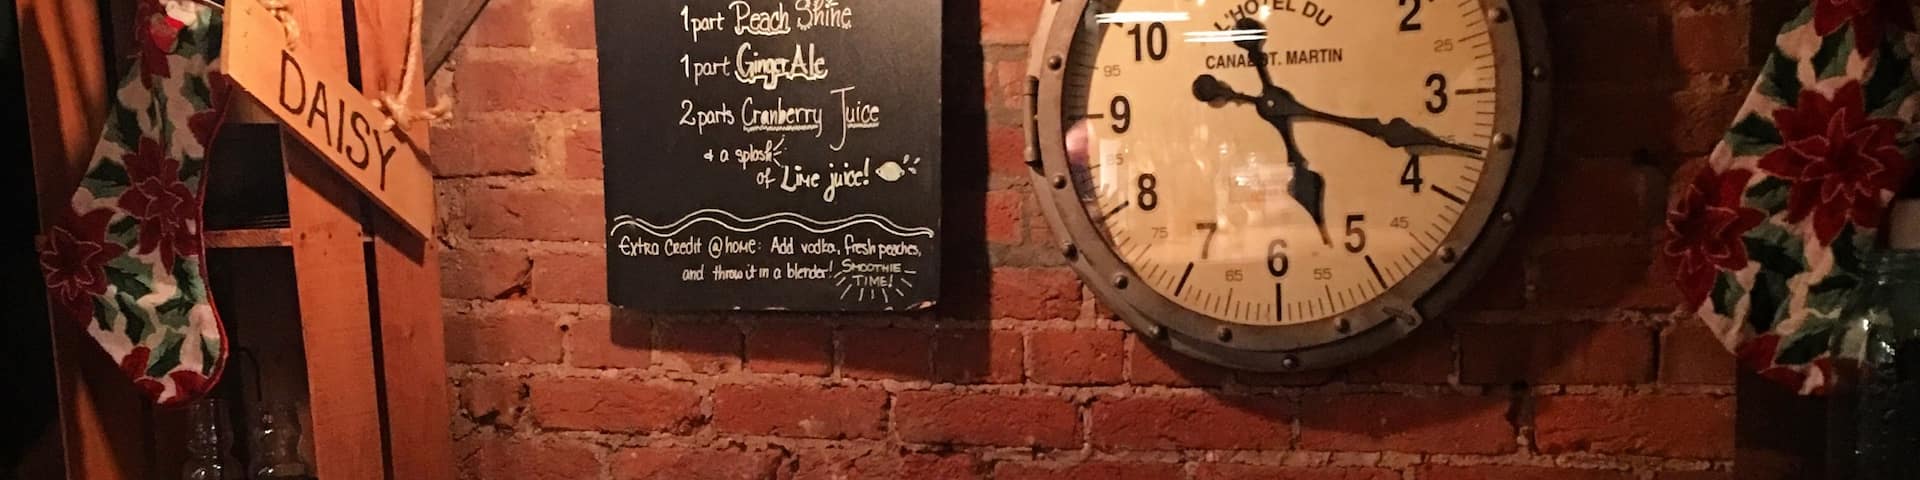 DAISY
1 part Peach Shine
1 part Ginger Ale
2 parts Cranberry Juice
& a splash
of Lime juice!
Extra Credit @ home: Add vodka, fresh peaches,
and throw it in a blender! SMOOTHIE
TIME!
L'HOTEL DU
CANAL ST. MARTIN
10
2
25
95
9
3
85
8
4
75
45
7
5
65
6
55